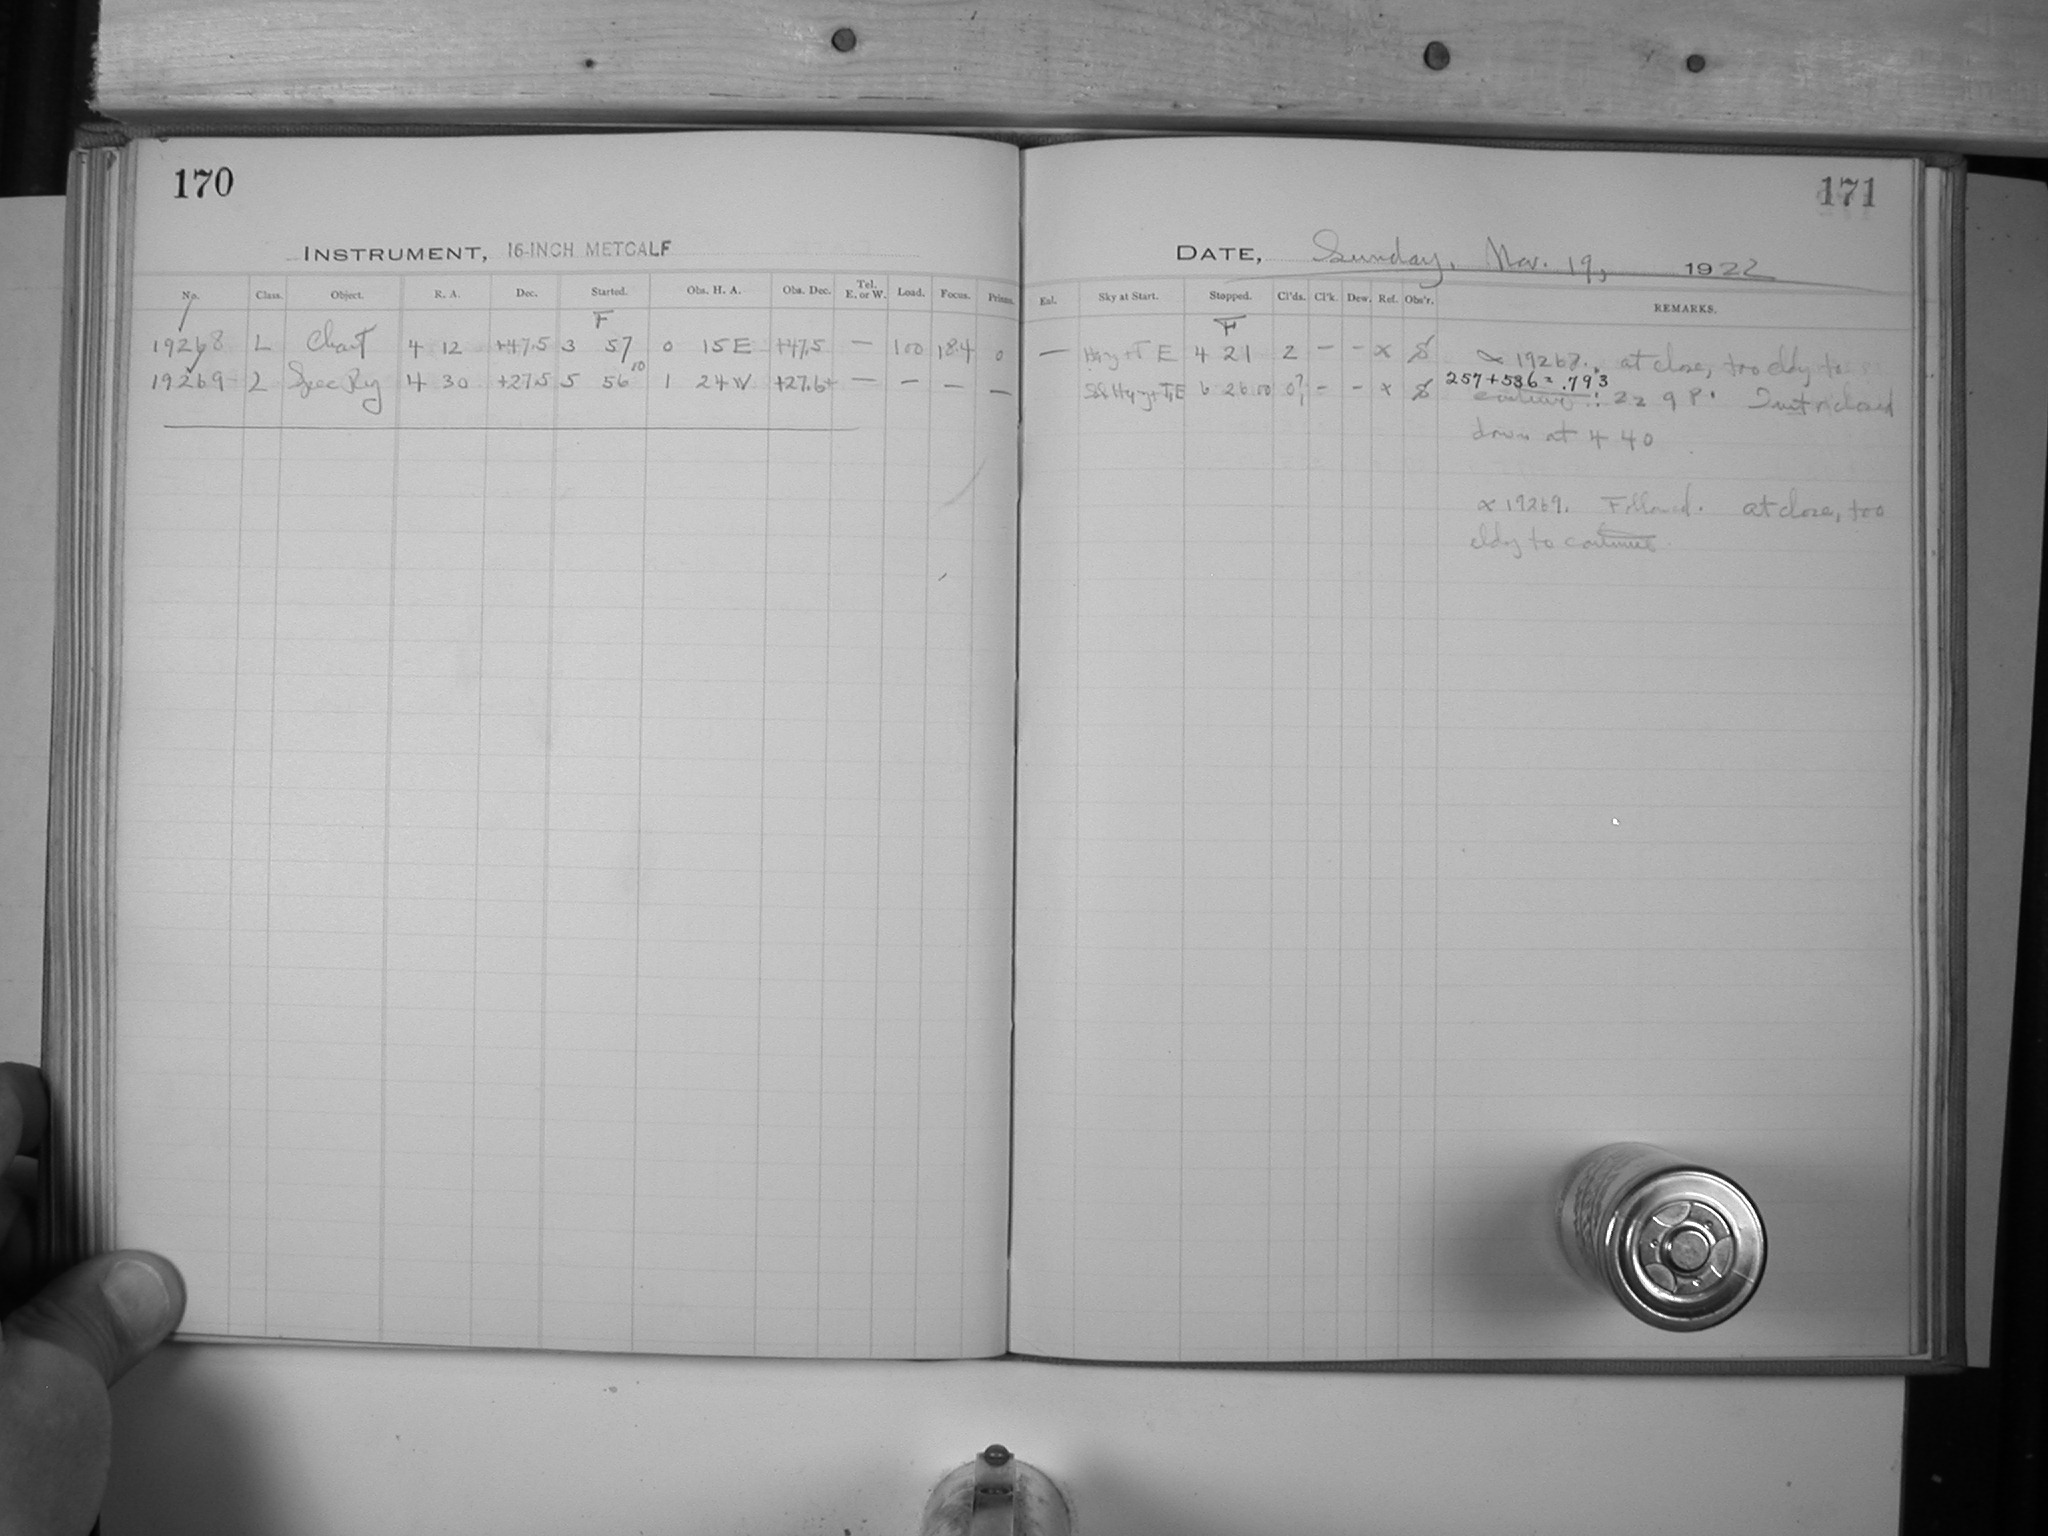 170
INSTRUMENT, 16-INCH METCALF
No. Class. Object. R. A. Dec. Started. Obs. H. A. Obs. Dec. Tel. E. or W. Load. Focus. Prism.
F
19268 L Chart 4 12 +47.5 3 57 0 15 E +47.5 — 100 18.4 0
19269 L Spec Reg 4 30 +27.5 5 56 10 1 24 W +27.6+ — — — —
171
DATE, Sunday, Nov. 19, 1922
Eul. Sky at Start. Stopped. Cl'ds. Cl'k. Dew. Ref. Obs'r. REMARKS.
F
— Hazy + T E 4 21 2 – – x
E 6 26 10 0? – – x
α 19268. at close, too cldy to
257+536=.793
continue : 22 9 P. Inst closed
down at 4 40
α 19269. Followed. at close, too
cldy to continue.